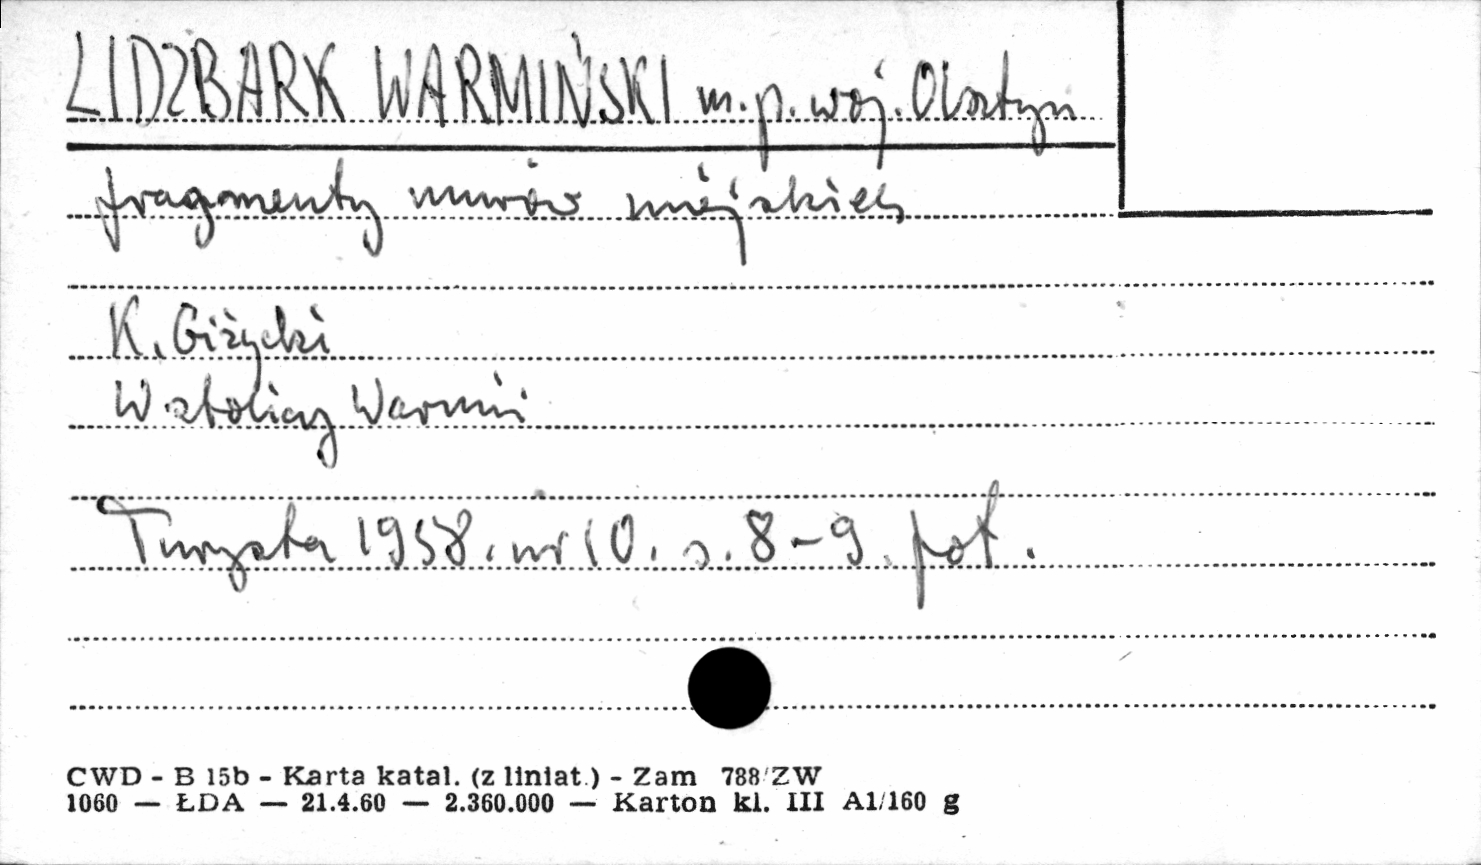 LIDZBARK WARMIŃSKI m.p. woj. Olsztyn
fragmenty murów miejskich
K. Giżycki
W stolicy Warmii
Turysta 1958. nr 10. s. 8-9. fot.
CWD - B 15b - Karta katal. (z liniat.) - Zam 788/ZW
1060 — ŁDA — 21.4.60 — 2.360.000 — Karton kl. III A1/160 g